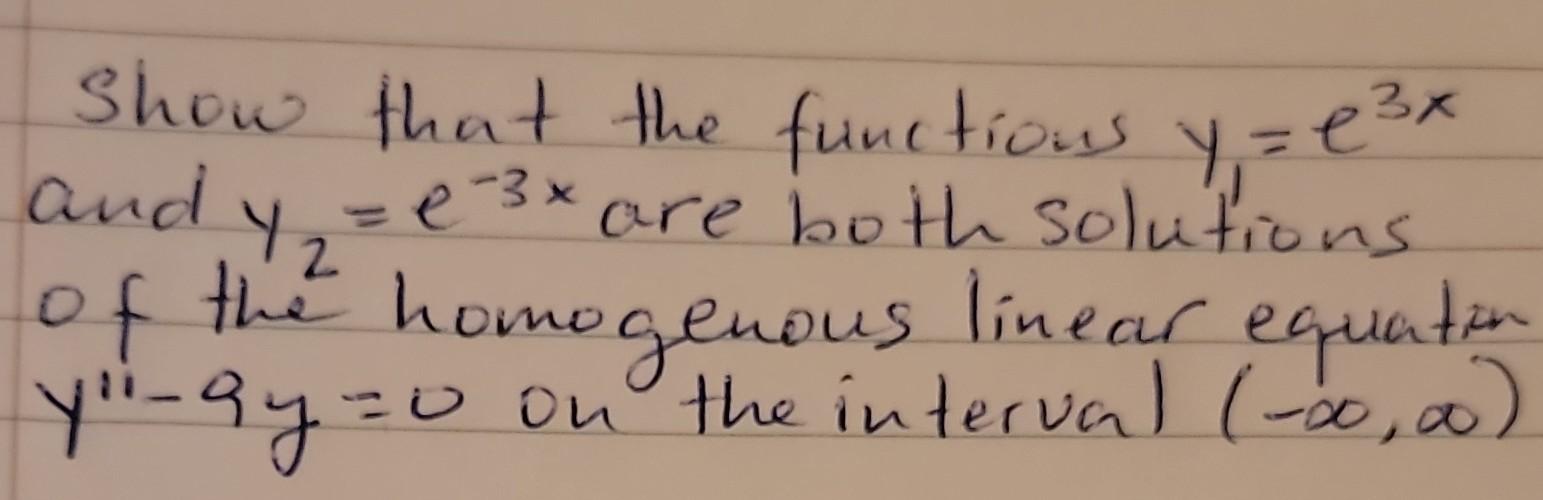 Show that the functions y₁ = e³ˣ
and y₂ = e⁻³ˣ are both solutions
of the homogenous linear equation
y'' - 9y = 0 on the interval (-∞, ∞)